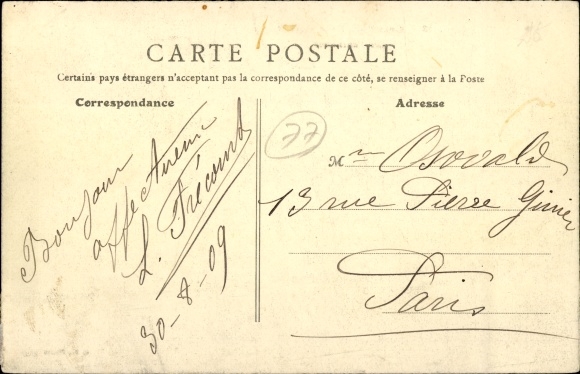 CARTE POSTALE
Certains pays étrangers n'acceptant pas la correspondance de ce côté, se renseigner à la Poste
Correspondance
Bonjour
affectueux
L. Frécourt
30-8-09
77
Adresse
M Osvvald
13 rue Pierre Ginier
Paris